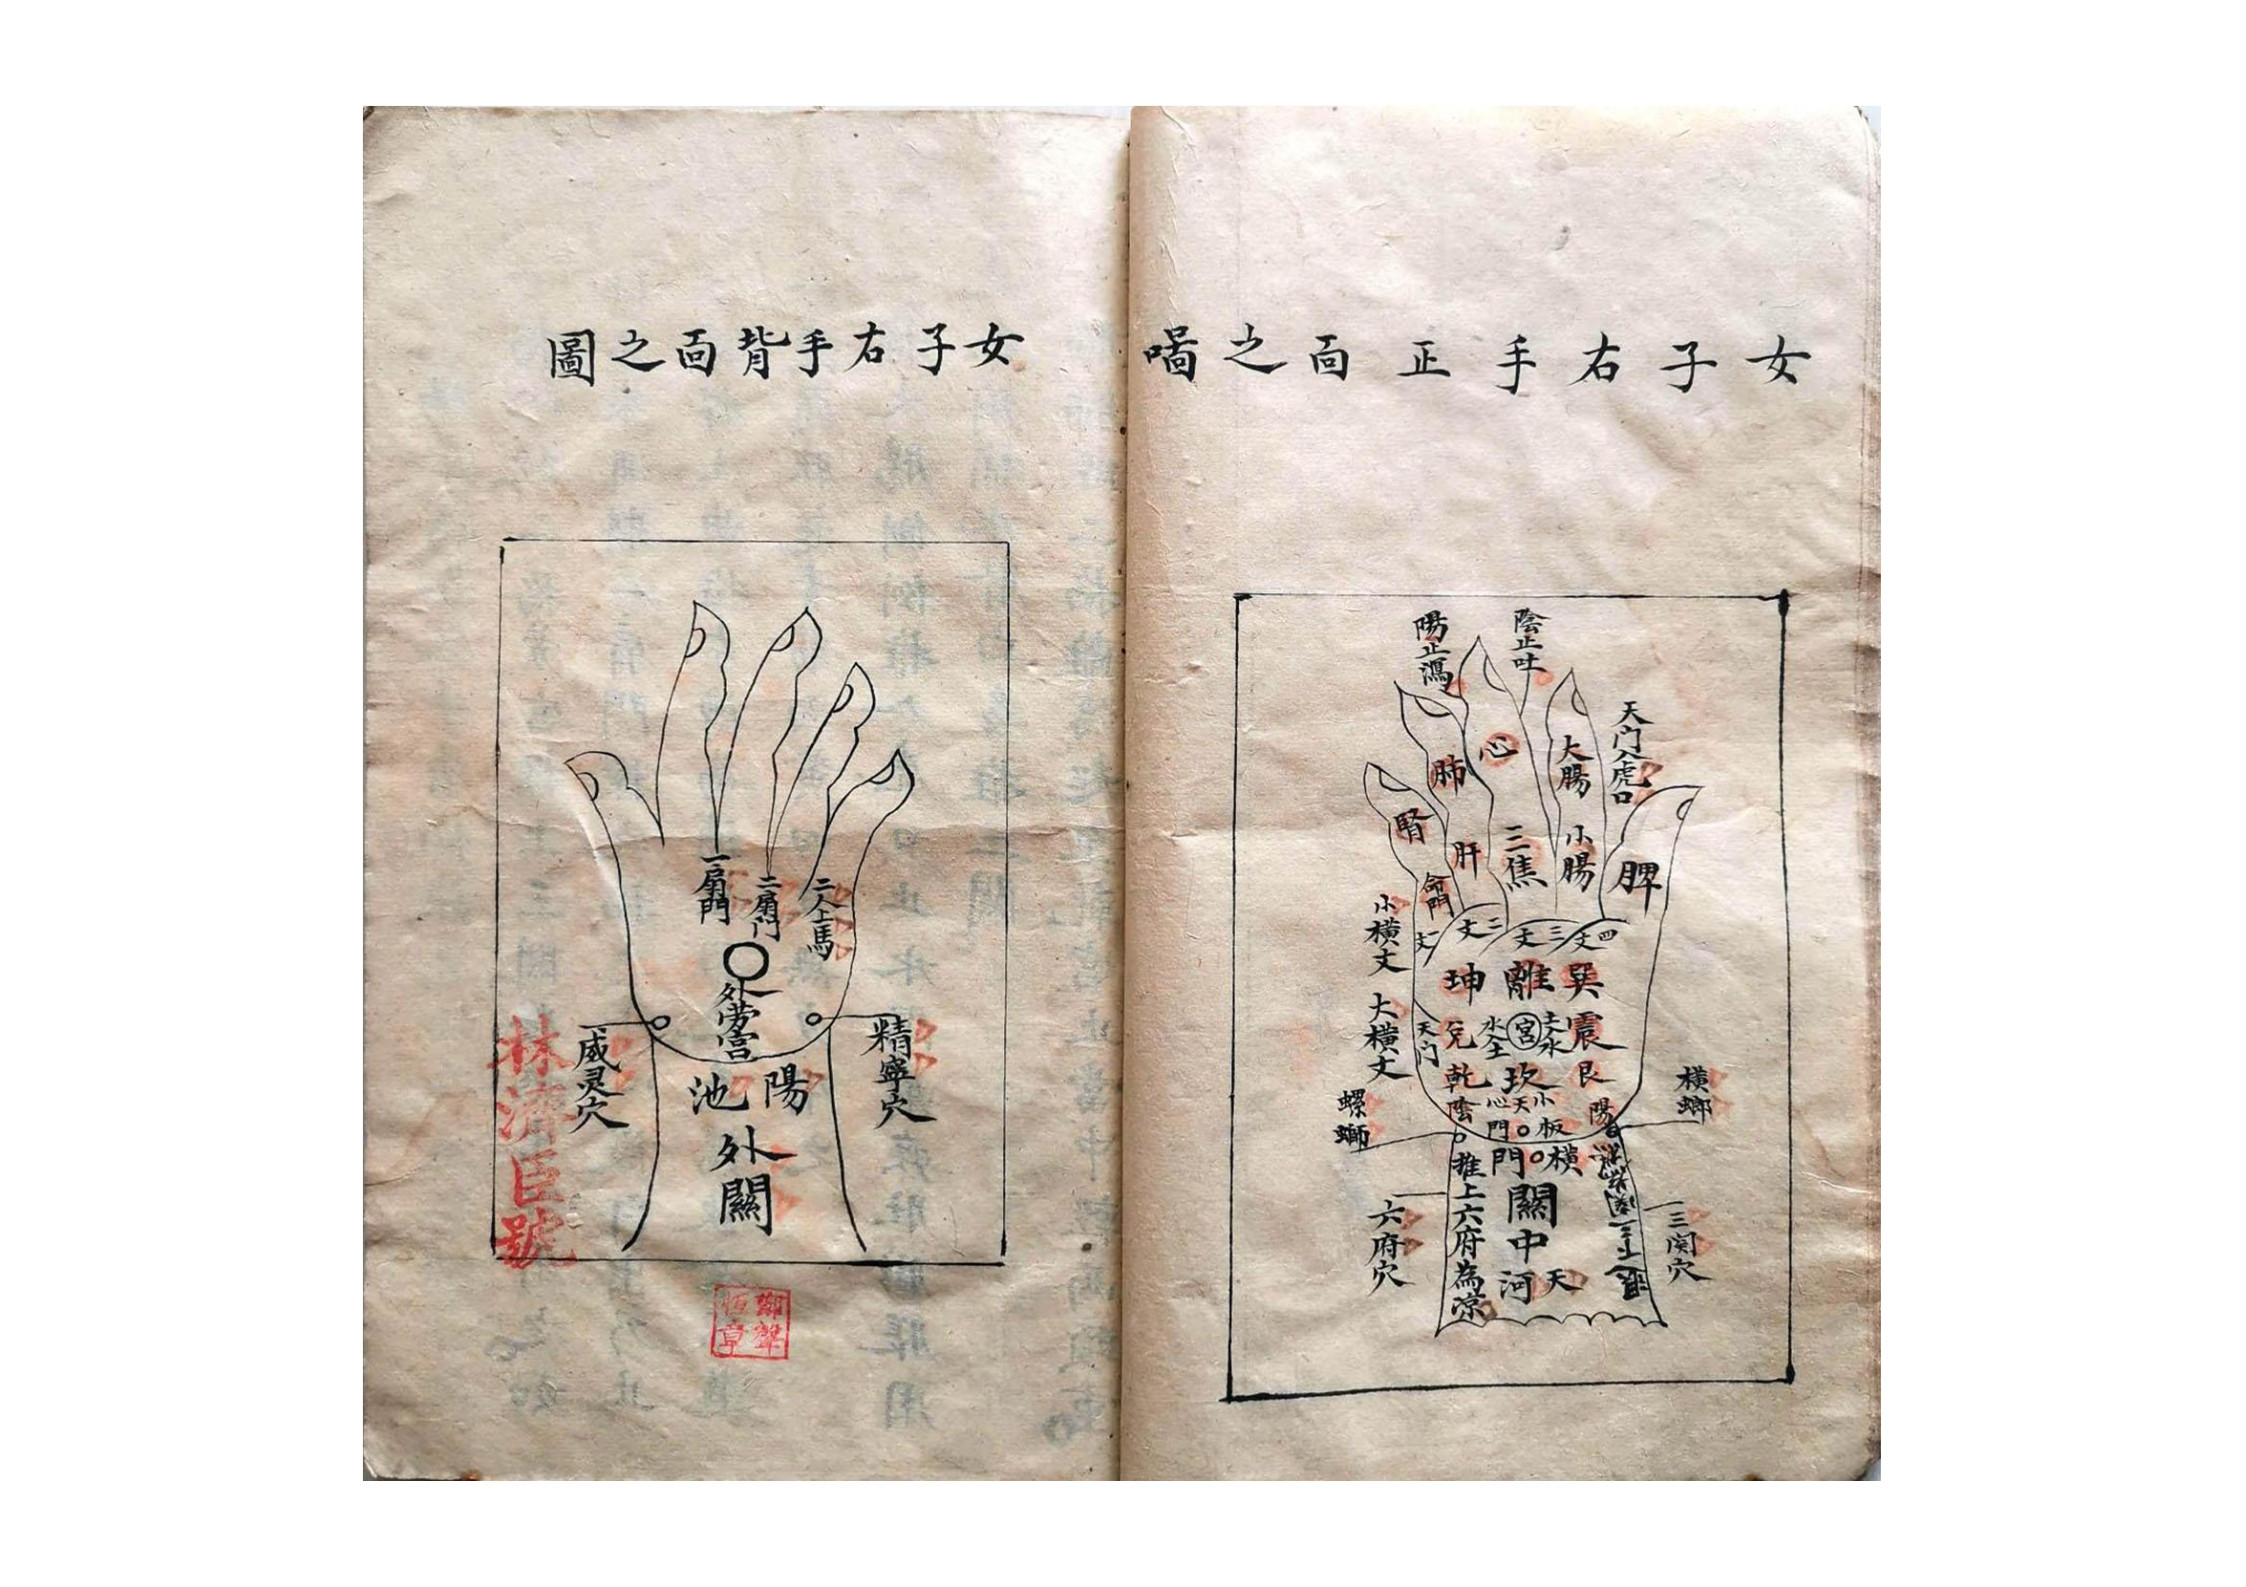 女子右手正面之啚
陽止瀉
陰止吐
天门入虎口
心
肺
大腸
腎
肝
三焦
小腸
脾
命門
小橫文
一文
二文
三文
四文
坤離巽
大橫文
天门
兌
水入土
宮
土入水
震
乾坎艮
陰
心
天门
小
板
陽
螺螄
橫螂
橫門
推上六府為涼
關中
天河
六府穴
三関穴
女子右手背面之圖
一扇門
二扇门
二人上馬
外劳宮
威灵穴
精寧穴
陽池
外關
林濟臣號
鄭聲恒章